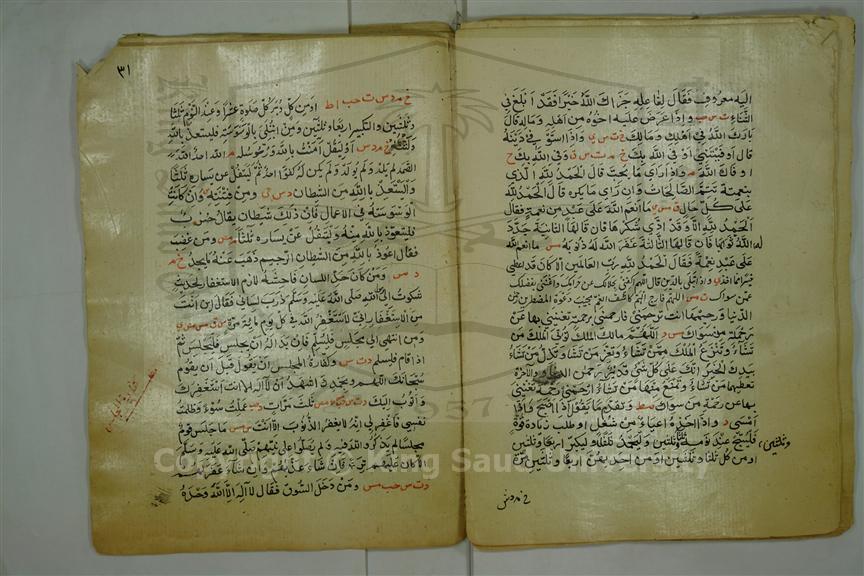 اليه معروف فقال لفاعله جزاك الله خيرا فقد ابلغ في
الثناء ت س حب واذا عرض عليه اخوه من اهله وماله قال
بارك الله في اهلك ومالك خ ت س ي واذا استوفى دينه
قال اوفيتني اوفى الله بك خ م ت س ق وفى الله بك خ
او فاك الله م واذا راى ما يحب قال الحمد لله الذي
بنعمته تتم الصالحات وان راى ما يكره قال الحمد لله
على كل حال ق مس ي ما انعم الله على عبد من نعمة فقال
الحمد لله الا وقد ادى شكرها فان قالها الثانية جدد
الله ثوابها فان قالها الثالثة غفر الله له ذنوبه مس ما انعم الله
على عبد نعمة فقال الحمد لله رب العالمين الا كان قد اعطى
خيرا مما اخذ ي واذا ابتلي بالدين قال اللهم اكفني بحلالك عن حرامك واغنني بفضلك
عمن سواك ت مس اللهم فارج الهم كاشف الغم مجيب دعوة المضطرين رحمن
الدنيا ورحيمهما انت ترحمني فارحمني برحمة تغنيني بها عن
رحمة من سواك مس اللهم مالك الملك تؤتي الملك من
تشاء وتنزع الملك ممن تشاء وتعز من تشاء وتذل من تشاء
بيدك الخير انك على كل شئ قدير رحمن الدنيا والاخرة
تعطيهما من تشاء وتمنع منهما من تشاء ارحمني رحمة تغنيني
بها عن رحمة من سواك صط وتقدم ما يقول اذا اصبح واذا
امسى د واذا اخذه اعياء من شغل او طلب زيادة قوة
فليسبح عند نومه ثلثا وثلثين وليحمد ثلثا وليكبر اربعا وثلثين
او من كل ثلثا وثلثين او من احديهن اربعا وثلثين
٣١
خ م د س ت حب اط او من كل دبر كل صلوة عشرا وعند النوم ثلثا
وثلثين والتكبير اربعا وثلثين ومن ابتلي بالوسوسة فليستعذ بالله
ولينته خ م د س او ليقل امنت بالله ورسوله م الله احد الله
الصمد لم يلد ولم يولد ولم يكن له كفوا احد ثم ليتفل عن يساره ثلثا
وليستعذ بالله من الشيطان د س ي ومن فتنته وان كانت
الوسوسة في الاعمال فان ذلك شيطان يقال له خنزب
فليتعوذ بالله منه وليتفل عن يساره ثلثا م مص ومن غضب
فقال اعوذ بالله من الشيطان الرجيم ذهب عنه ما يجد خ م
د س ومن كان حد اللسان فاحشه لازم الاستغفار لحديث
شكوت الى رسول الله صلى الله عليه وسلم ذرب لساني فقال اين انت
من الاستغفار اني لاستغفر الله في كل يوم مائة مرة س ق مس مص ي
ومن انتهى الى مجلس فليسلم فان بدا له ان يجلس فليجلس ثم
اذا قام فليسلم د ت س وكفارة المجلس ان يقول قبل ان يقوم
سبحانك اللهم وبحمدك اشهد ان لا اله الا انت استغفرك
واتوب اليك د ت س حب مس ط مص ثلث مرات د حب عملت سوءا وظلمت
نفسي فاغفر لي انه لا يغفر الذنوب الا انت س مس ما جلس قوم
مجلسا لم يذكروا الله فيه ولم يصلوا على نبيهم صلى الله عليه وسلم
الا كان عليهم ترة فان شاء عذبهم وان شاء غفر لهم
د ت س حب مس ومن دخل السوق فقال لا اله الا الله وحده
Copyright © King Saud University
1957